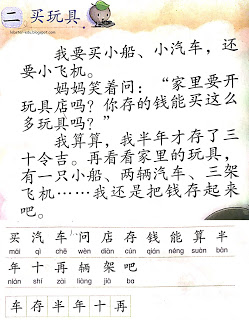 二 买玩具
我要买小船、小汽车，还
要小飞机。
妈妈笑着问：“家里要开
玩具店吗？你存的钱能买这么
多玩具吗？”
我算算，我半年才存了三
十令吉。再看看家里的玩具，
有一只小船、两辆汽车、三架
飞机……我还是把钱存起来
吧。
买 汽 车 问 店 存 钱 能 算 半
mǎi qì chē wèn diàn cún qián néng suàn bàn
年 十 再 辆 架 吧
nián shí zài liàng jià ba
车 存 半 年 十 再